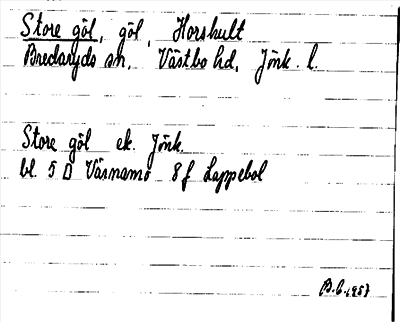 Store göl, göl, Horshult
Bredaryds sn, Västbo hd, Jönk. l.
Store göl ek. Jönk.
bl. 5 D Värnamo 8f Lappebol
B.C. 1987